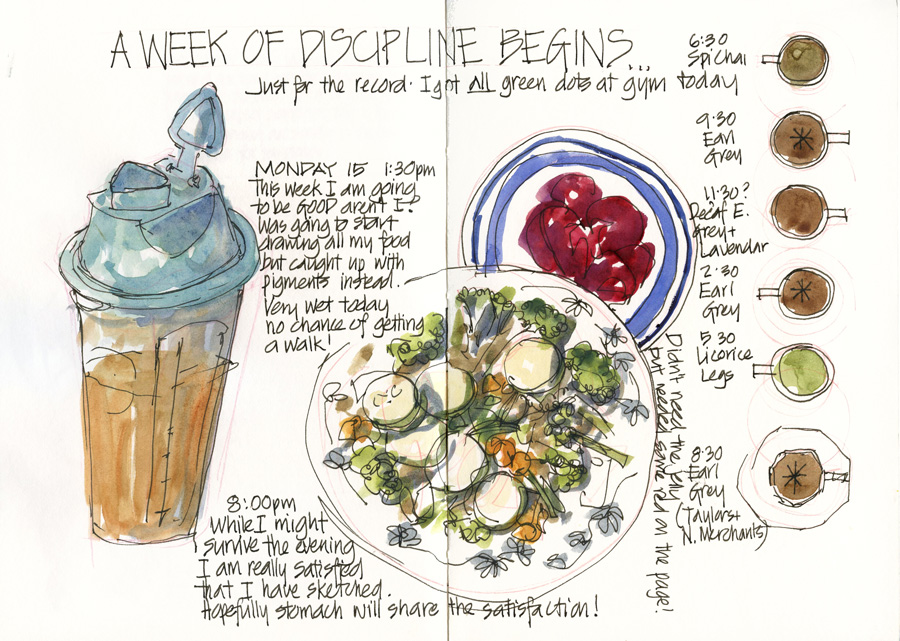 A WEEK OF DISCIPLINE BEGINS...
Just for the record. I got ALL green dots at gym today
MONDAY 15 1:30pm
This week I am going
to be GOOD aren't I?
was going to start
drawing all my food
but caught up with
pigments instead.
Very wet today
no chance of getting
a walk!
6:30
SpiChai
9:30
Earl
Grey
11:30?
Decaf E.
Grey +
Lavendar
2:30
Earl
Grey
5 30
Licorice
Legs
8:30
Earl
Grey
(Taylors +
N. Merchants)
Didn't need the jelly
but needed some red on the page!
8:00pm
While I might
survive the evening
I am really satisfied
that I have sketched.
Hopefully stomach will share the satisfaction!